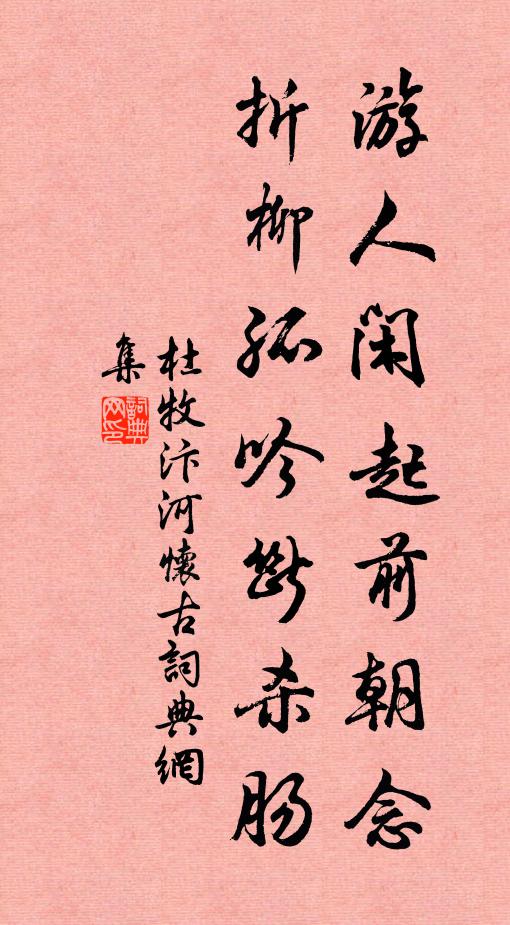 游人闲起前朝念
折柳孤吟断杀肠
杜牧汴河懷古詞典網
集
詞典
网印